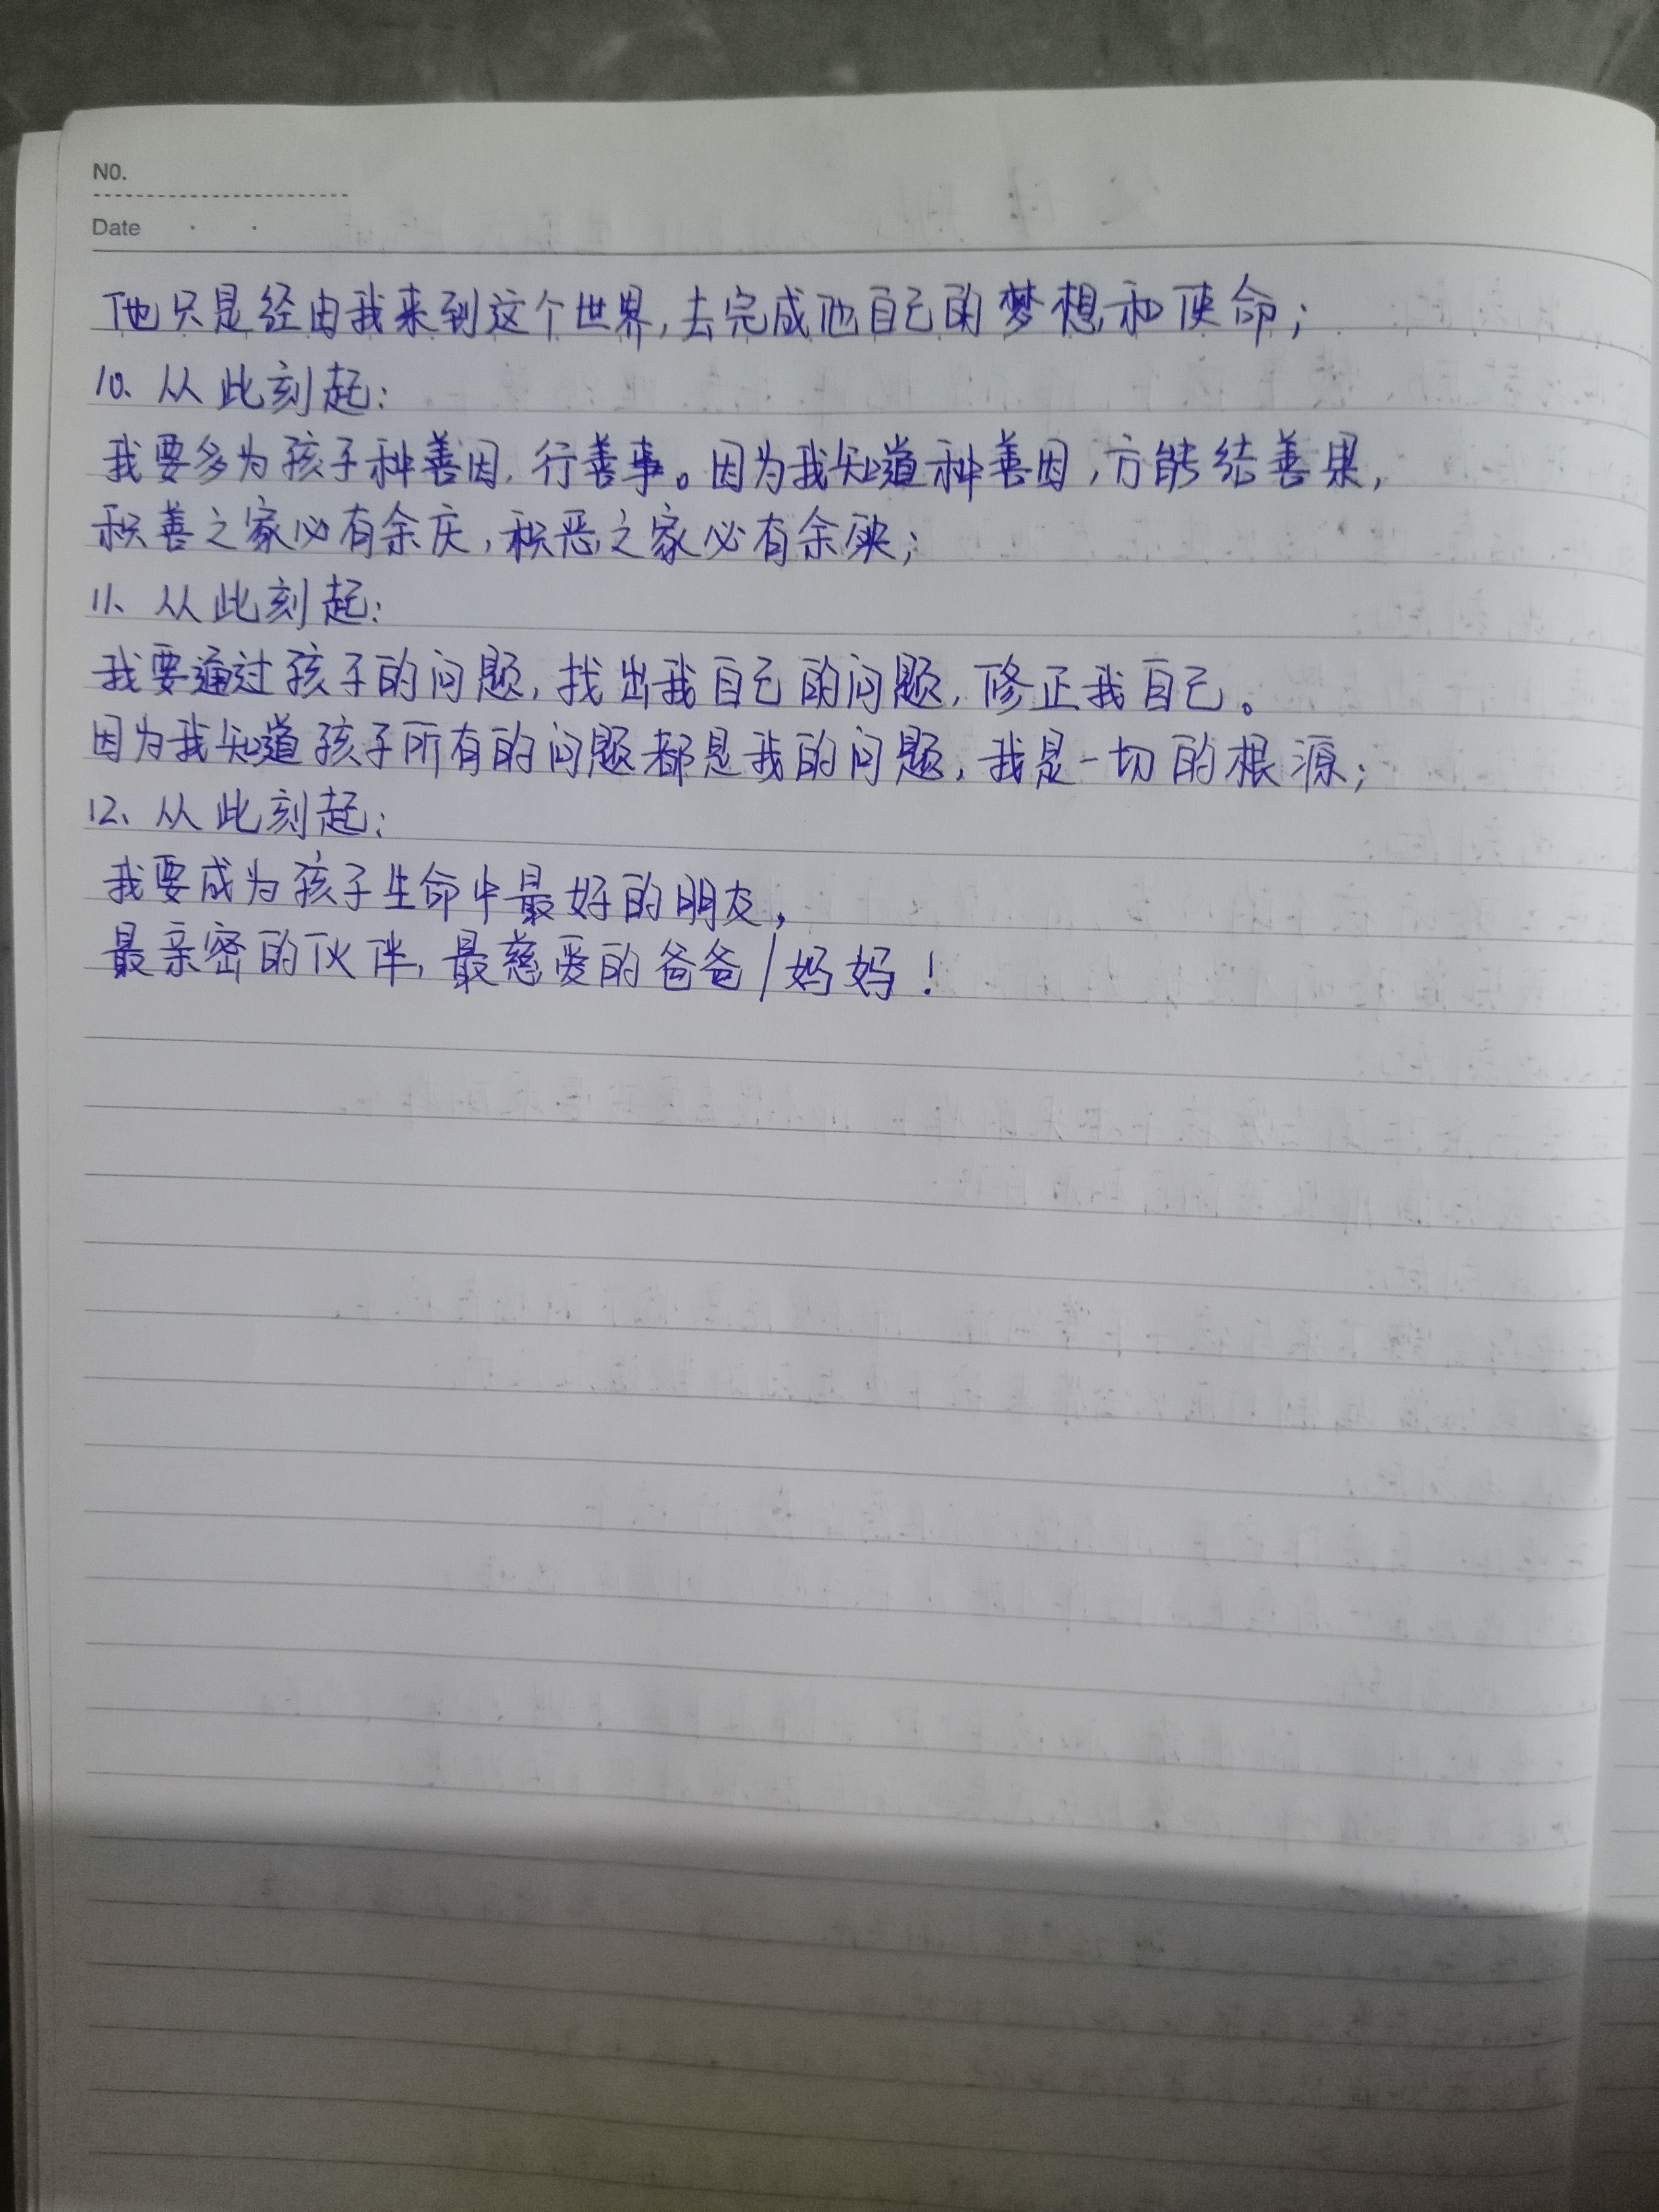 NO.
Date
他只是经由我来到这个世界,去完成他自己的梦想和使命;
10、从此刻起:
我要多为孩子种善因,行善事。因为我知道种善因,方能结善果,
积善之家必有余庆,积恶之家必有余殃;
11、从此刻起:
我要通过孩子的问题,找出我自己的问题,修正我自己。
因为我知道孩子所有的问题都是我的问题,我是一切的根源;
12、从此刻起:
我要成为孩子生命中最好的朋友,
最亲密的伙伴,最慈爱的爸爸/妈妈!